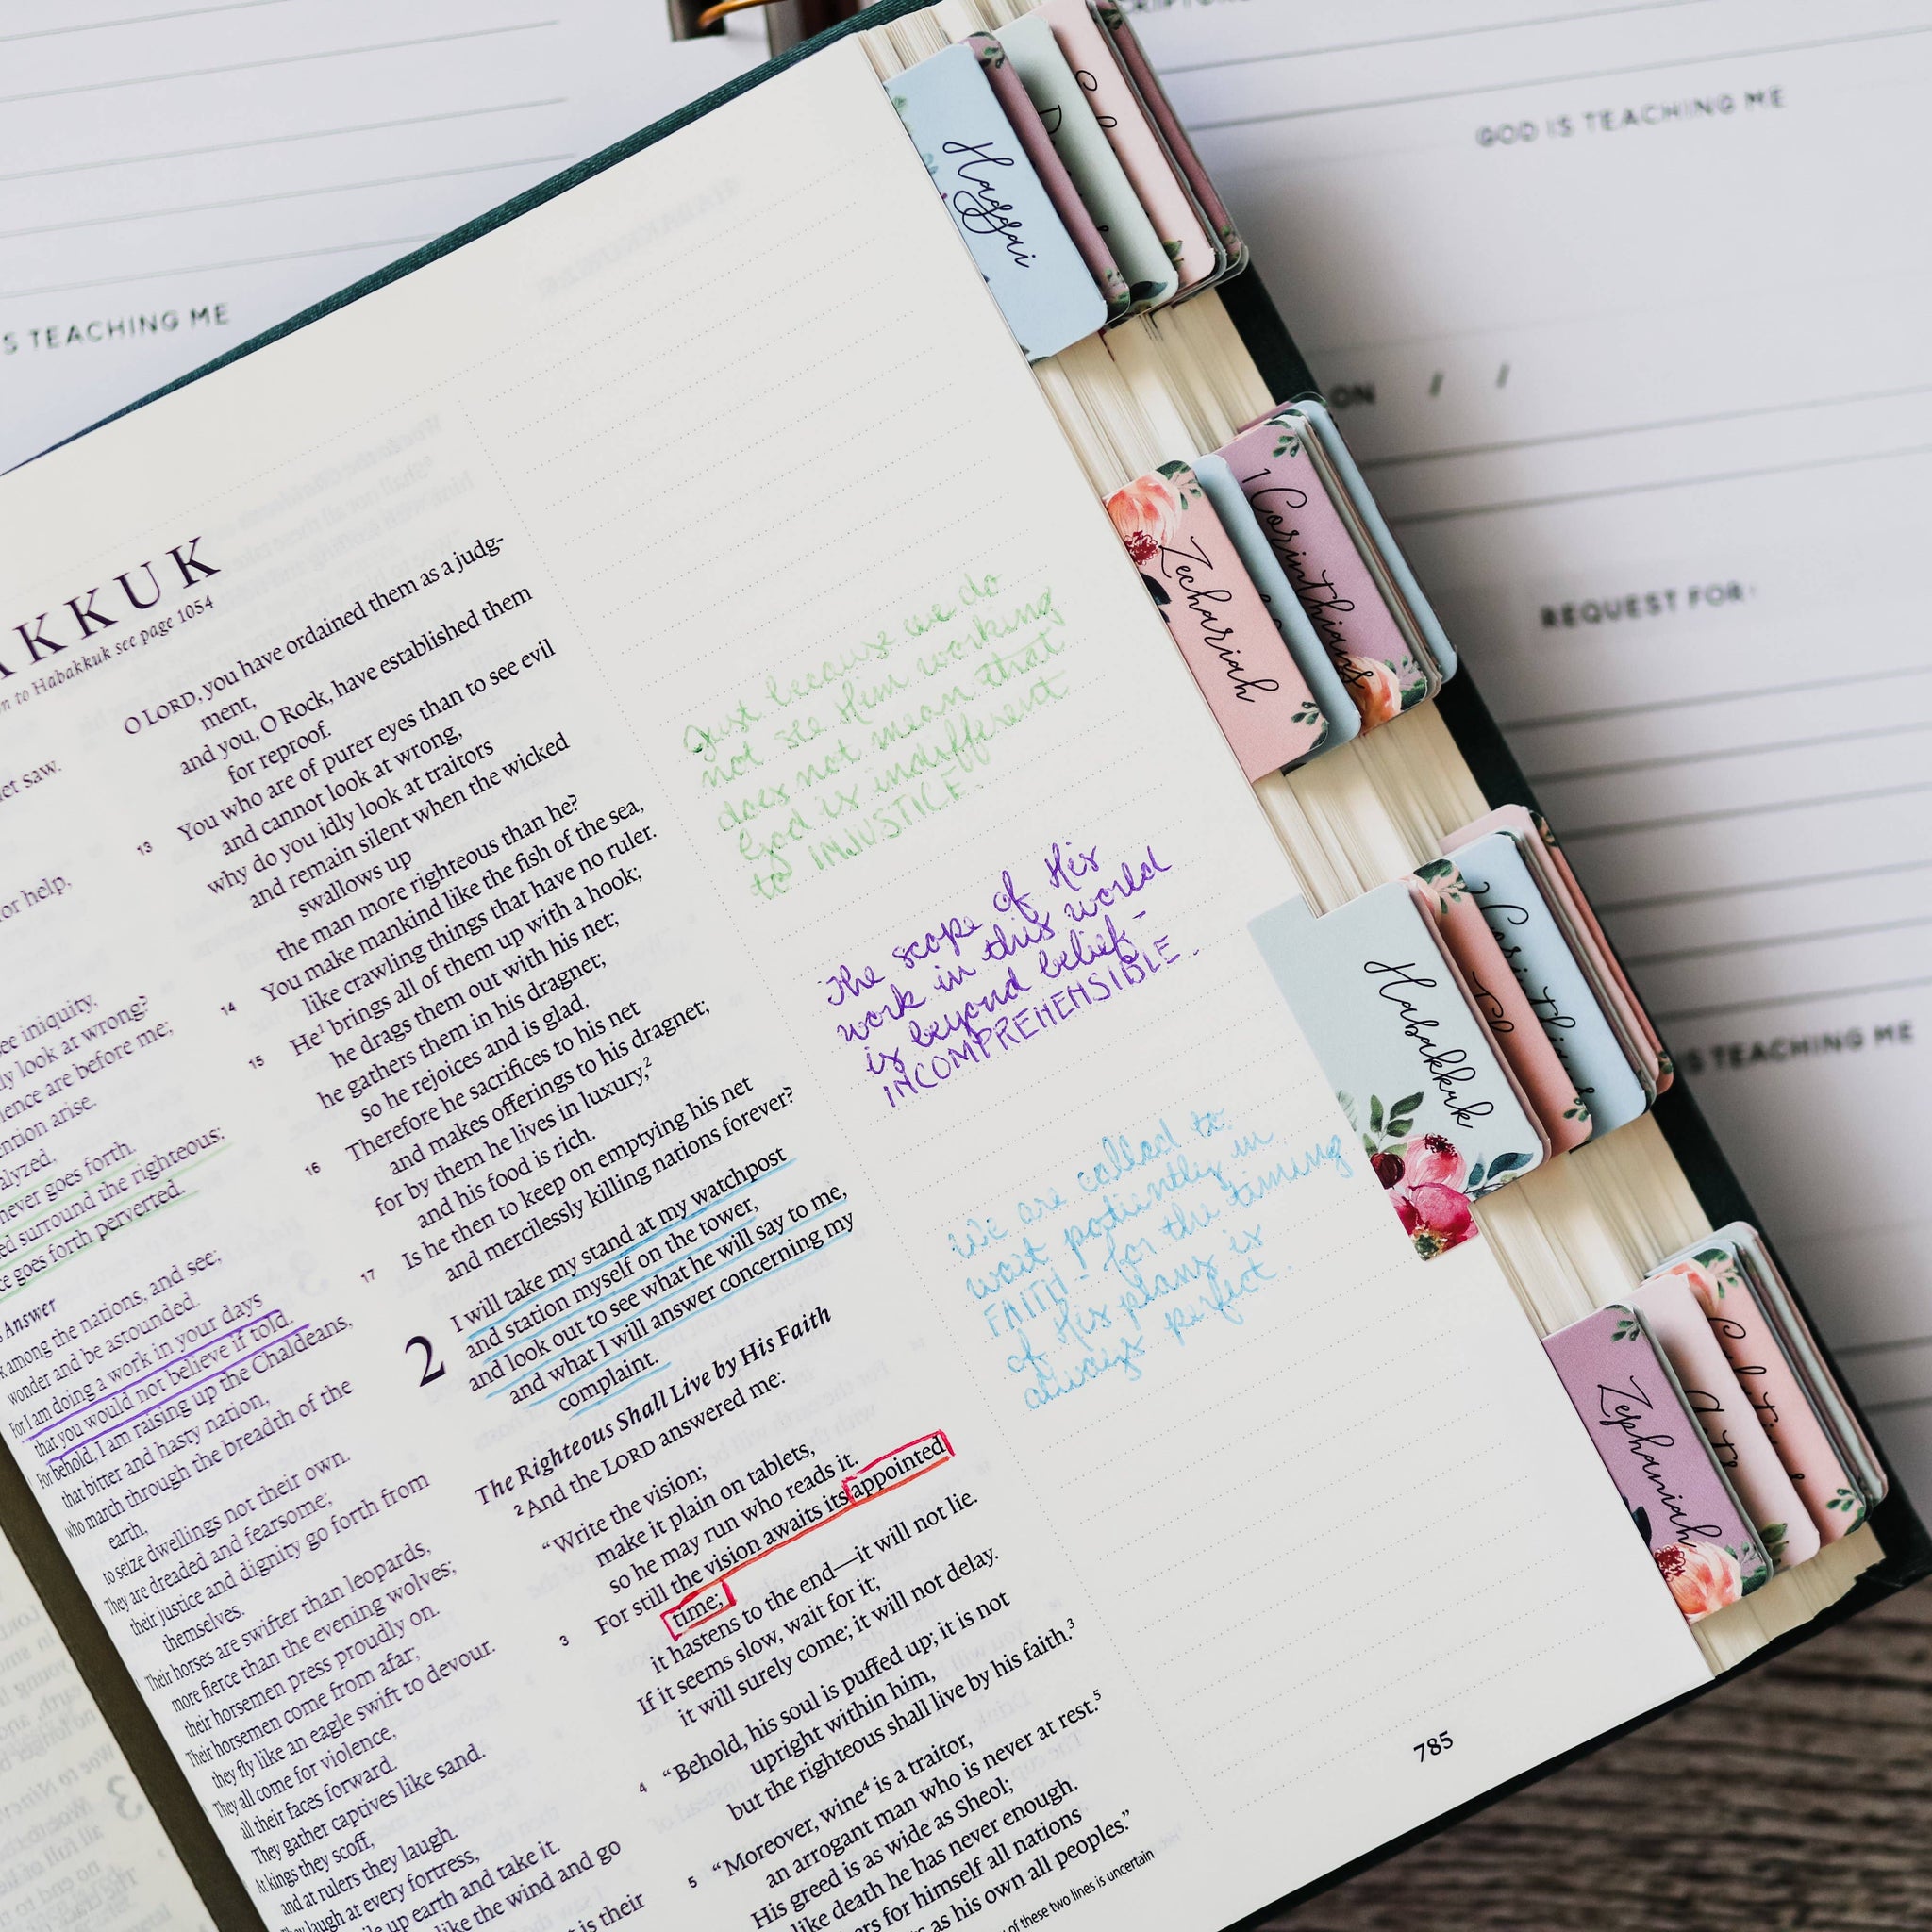 S TEACHING ME
GOD IS TEACHING ME
ON / /
REQUEST FOR:
S TEACHING ME
AKKUK
n to Habakkuk see page 1054
et saw.
or help,
ee iniquity,
ly look at wrong?
lence are before me;
ntion arise.
alyzed,
never goes forth.
ed surround the righteous;
ce goes forth perverted.
Answer
k among the nations, and see;
wonder and be astounded.
For I am doing a work in your days
that you would not believe if told.
For behold, I am raising up the Chaldeans,
that bitter and hasty nation,
who march through the breadth of the
earth,
to seize dwellings not their own.
They are dreaded and fearsome;
their justice and dignity go forth from
themselves.
Their horses are swifter than leopards,
more fierce than the evening wolves;
their horsemen press proudly on.
Their horsemen come from afar;
they fly like an eagle swift to devour.
They all come for violence,
all their faces forward.
They gather captives like sand.
At kings they scoff,
and at rulers they laugh.
They laugh at every fortress,
le up earth and take it.
like the wind and go
t is their
O LORD, you have ordained them as a judg-
ment,
and you, O Rock, have established them
for reproof.
13 You who are of purer eyes than to see evil
and cannot look at wrong,
why do you idly look at traitors
and remain silent when the wicked
swallows up
the man more righteous than he?
14 You make mankind like the fish of the sea,
like crawling things that have no ruler.
15 He¹ brings all of them up with a hook;
he drags them out with his net;
he gathers them in his dragnet;
so he rejoices and is glad.
16 Therefore he sacrifices to his net
and makes offerings to his dragnet;
for by them he lives in luxury,²
and his food is rich.
17 Is he then to keep on emptying his net
and mercilessly killing nations forever?
2 I will take my stand at my watchpost
and station myself on the tower,
and look out to see what he will say to me,
and what I will answer concerning my
complaint.
The Righteous Shall Live by His Faith
² And the LORD answered me:
“Write the vision;
make it plain on tablets,
so he may run who reads it.
3 For still the vision awaits its appointed
time;
it hastens to the end—it will not lie.
If it seems slow, wait for it;
it will surely come; it will not delay.
4 “Behold, his soul is puffed up; it is not
upright within him,
but the righteous shall live by his faith.³
5 “Moreover, wine⁴ is a traitor,
an arrogant man who is never at rest.⁵
His greed is as wide as Sheol;
like death he has never enough.
ers for himself all nations
s as his own all peoples.”
of these two lines is uncertain
Just because we do
not see Him working
does not mean that
God is indifferent
to INJUSTICE.
The scope of His
work in this world
is beyond belief -
INCOMPREHENSIBLE.
We are called to
wait patiently in
FAITH - for the timing
of His plans is
always perfect.
785
Haggai
Zechariah
1 Corinthians
Habakkuk
Corinthians
Zephaniah